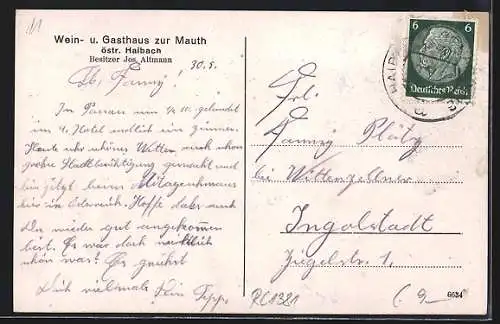 11
Wein- u. Gasthaus zur Mauth
östr. Haibach
Besitzer Jos. Altmann
30.5.
Lb. Fanny!
In Passau um ½ 10 gelandet
im 4. Hotel endlich ein Zimmer.
Heute bei schönem Wetter auch schon
große Stadtbesichtigung gemacht und
bin jetzt beim Mittagessen
hier in Österreich. Hoffe daß auch
Du wieder gut angekommen
bist. Es war doch wirklich
schön was? Es grüßt
Dich vielmals Dein Sepp.
6
6
Deutsches Reich
Frl.
Fanny Plötz
bei Wittenzellner
Ingolstadt
Ziegelstr. 1.
RC1381
6624